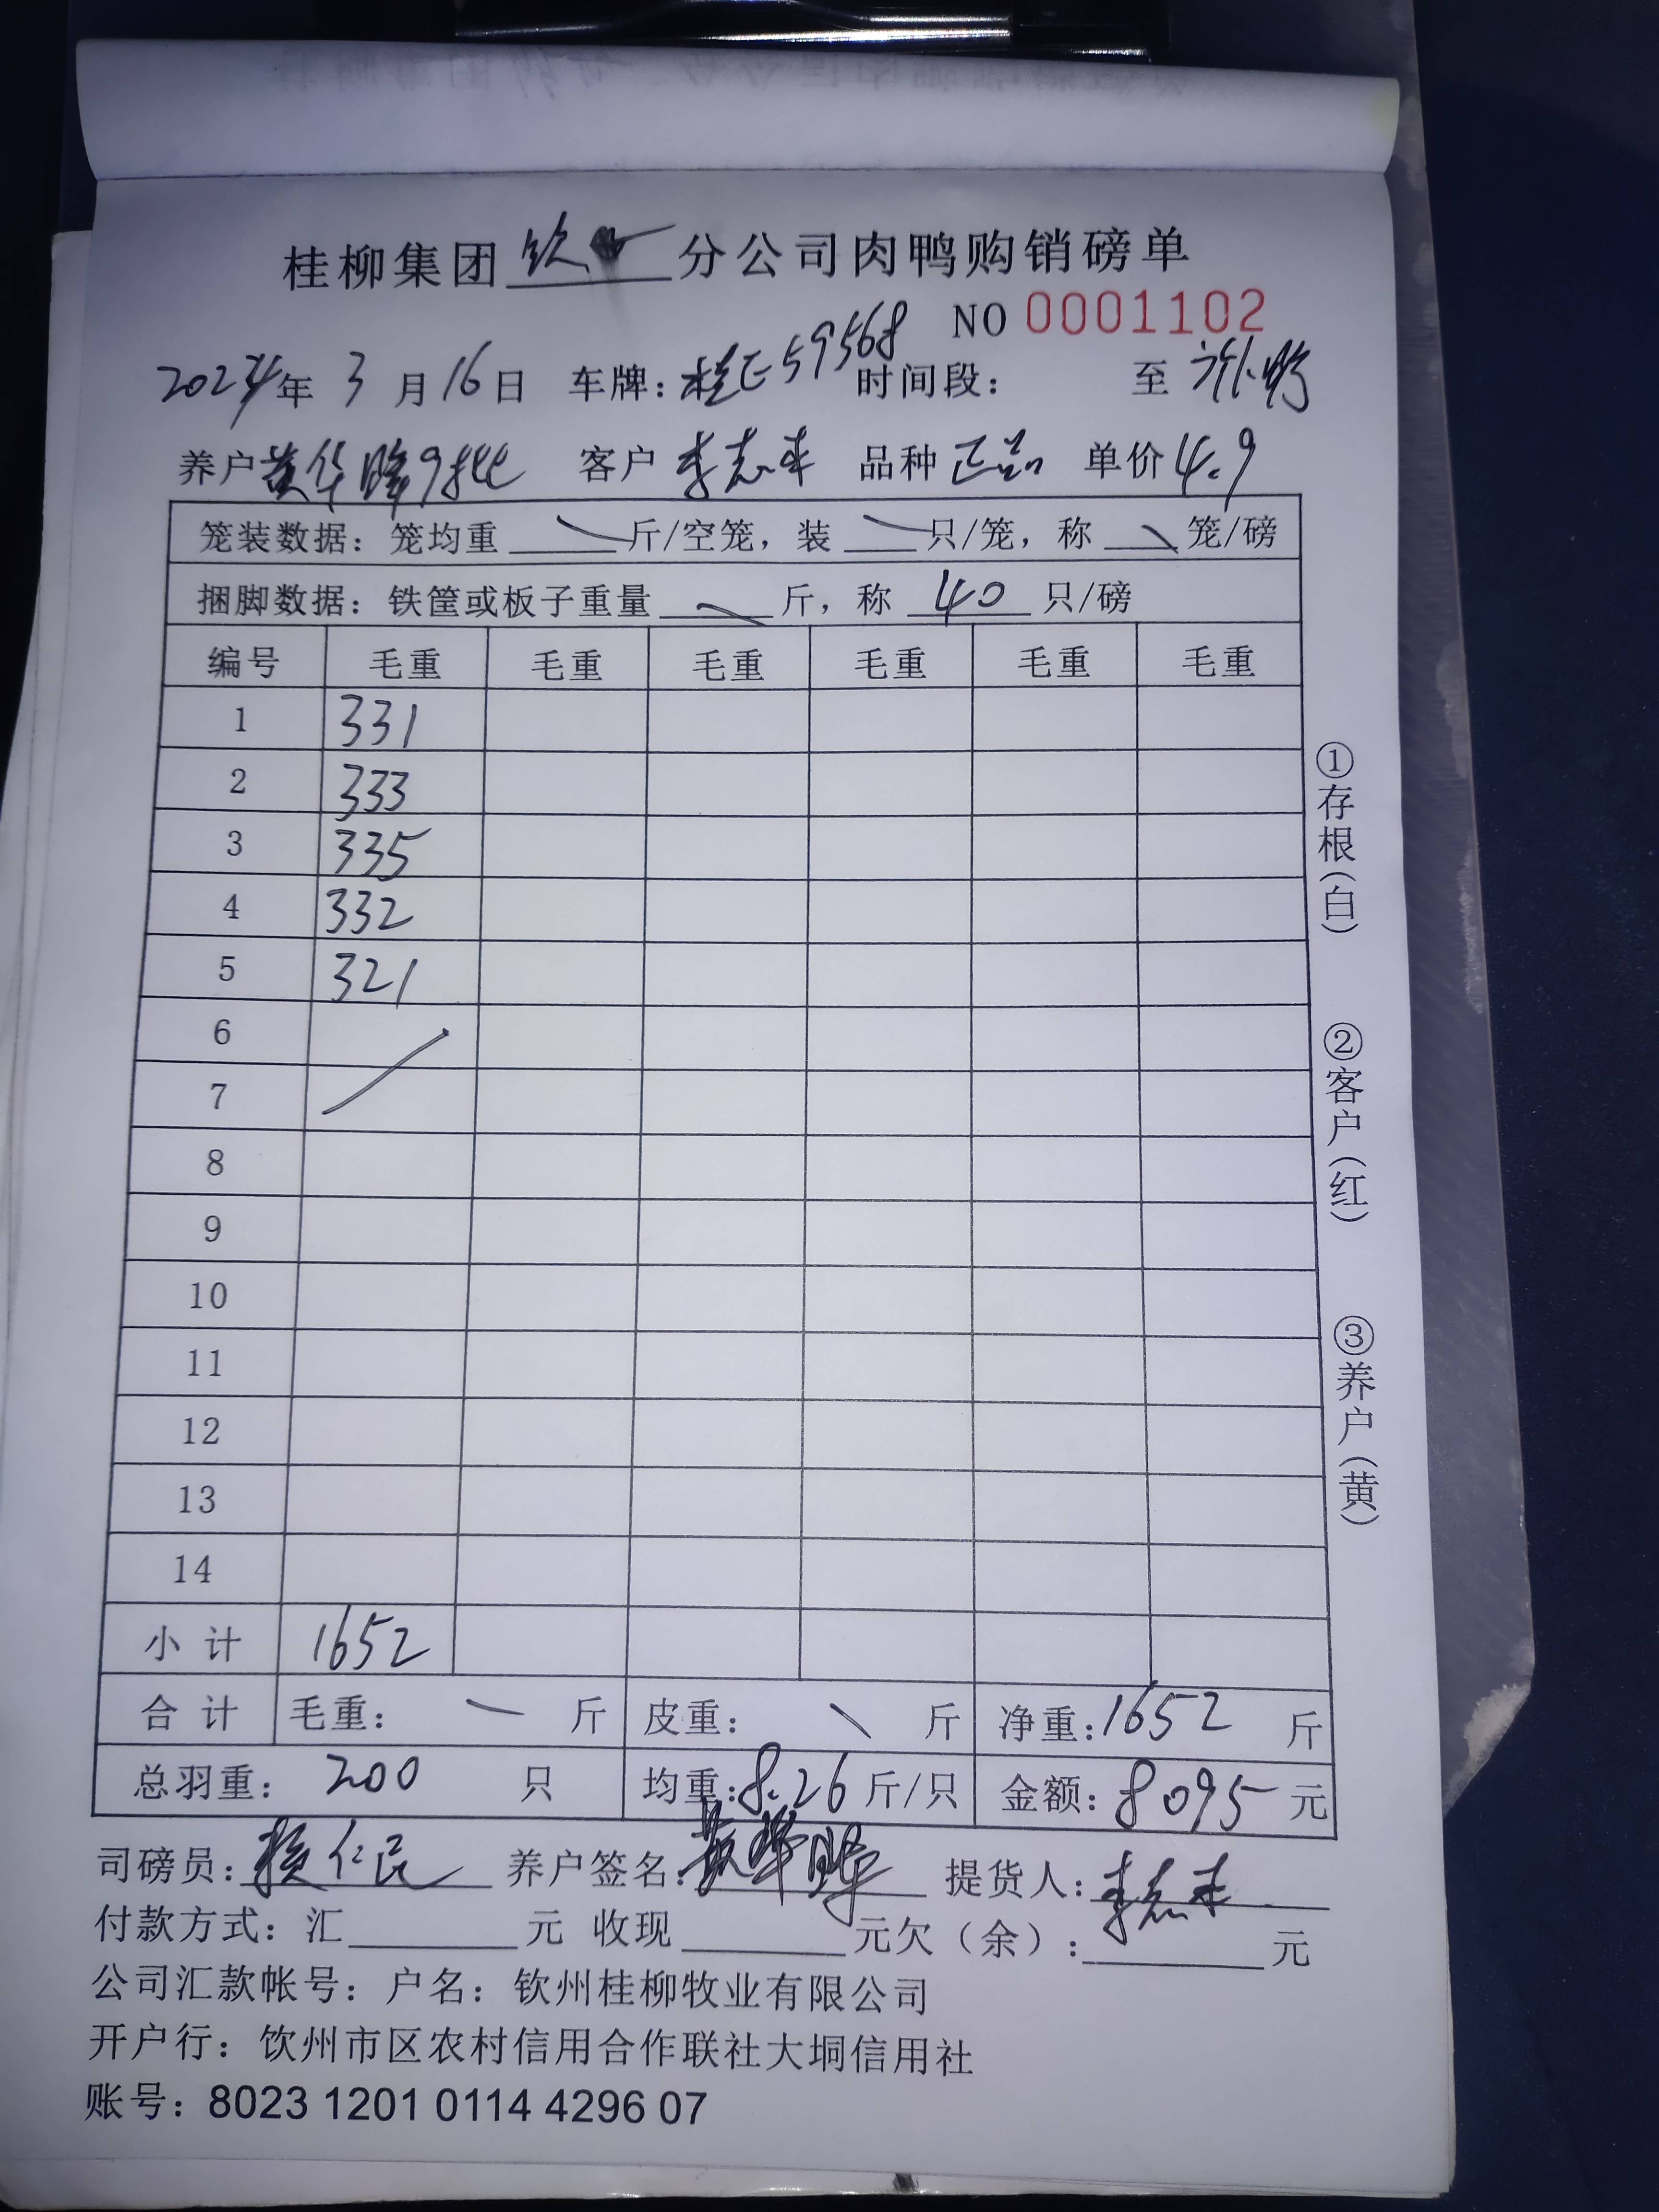 桂柳集团 钦 分公司肉鸭购销磅单
NO 0001102
2024年 3 月 16 日 车牌: 桂E59568 时间段: 至
养户 黄华晖9批 客户 李志来 品种 正品 单价 4.9
笼装数据: 笼均重 斤/空笼, 装 只/笼, 称 笼/磅
捆脚数据: 铁筐或板子重量 斤, 称 40 只/磅
编号 毛重 毛重 毛重 毛重 毛重 毛重
1 331
2 333
3 335
4 332
5 321
6
7
8
9
10
11
12
13
14
小计 1652
合计 毛重: 斤 皮重: 斤 净重: 1652 斤
总羽重: 200 只 均重: 8.26 斤/只 金额: 8095 元
司磅员: 仁民 养户签名: 黄华晖 提货人: 李志来
付款方式: 汇 元 收现 元欠（余）: 元
公司汇款帐号: 户名: 钦州桂柳牧业有限公司
开户行: 饮州市区农村信用合作联社大垌信用社
账号: 8023 1201 0114 4296 07
①存根(白)
②客户(红)
③养户(黄)